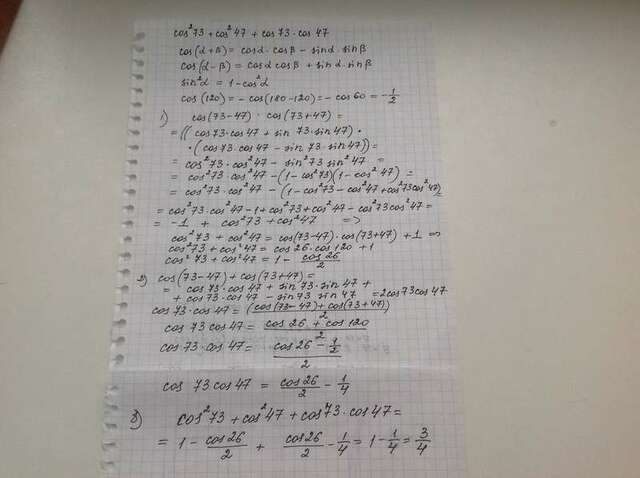 cos²73 + cos²47 + cos73 · cos 47
cos(α+β) = cosα · cosβ − sinα · sinβ
cos(α−β) = cosα cosβ + sinα · sinβ
sin²α = 1 − cos²α
cos(120) = − cos(180−120) = − cos 60 = −1/2
1) cos(73−47) · cos(73+47) =
= ((cos73·cos47 + sin 73·sin47) ·
· (cos73·cos47 − sin73·sin47)) =
= cos²73·cos²47 − sin²73 sin²47 =
= cos²73·cos²47 − (1−cos²73)(1−cos²47) =
= cos²73·cos²47 − (1−cos²73−cos²47+cos²73cos²47)
= cos²73·cos²47 −1 + cos²73 + cos²47 − cos²73cos²47 =
= −1 + cos²73 + cos²47 =>
cos²73 + cos²47 = cos(73−47)·cos(73+47) + 1 =>
cos²73 + cos²47 = cos 26·cos 120 + 1
cos²73 + cos²47 = 1 − cos26/2
2) cos(73−47) + cos(73+47) =
= cos73·cos47 + sin73·sin47 +
+ cos73·cos47 − sin73 sin47 = 2cos73cos47
cos73·cos47 = (cos(73−47)+cos(73+47))/2
cos 73 cos47 = cos26 + cos120/2
cos 73·cos47 = cos26 − 1/2/2
cos 73 cos47 = cos26/2 − 1/4
3) cos²73 + cos²47 + cos73·cos47 =
= 1 − cos26/2 + cos26/2 − 1/4 = 1 − 1/4 = 3/4